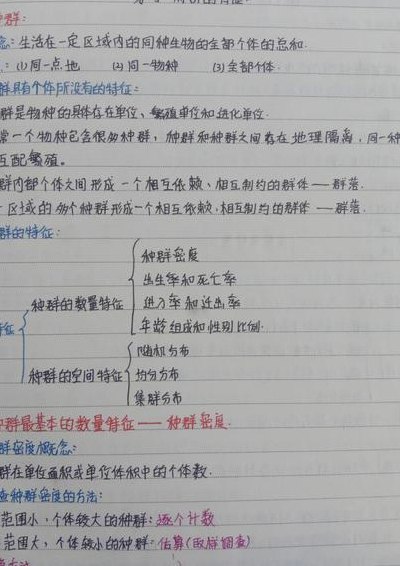 种群:
念:生活在一定区域内的同种生物的全部个体的总和.
点:(1)同一点地 (2)同一物种 (3)全部个体.
群具有个体所没有的特征:
群是物种的具体存在单位、繁殖单位和进化单位.
常一个物种包含很多种群,种群和种群之间存在地理隔离,同一种
互配繁殖。
群内部个体之间形成一个相互依赖、相互制约的群体——群落.
一区域的多个种群形成一个相互依赖,相互制约的群体——群落.
群的特征:
种群密度
出生率和死亡率
种群的数量特征
迁入率和迁出率
特征
年龄组成和性别比例.
随机分布
种群的空间特征
均匀分布
集群分布
种群最基本的数量特征——种群密度.
群密度概念:
群在单位面积或单位体积中的个体数.
查种群密度的方法:
范围小,个体较大的种群:逐个计数
范围大,个体较小的种群:估算(取样调查)